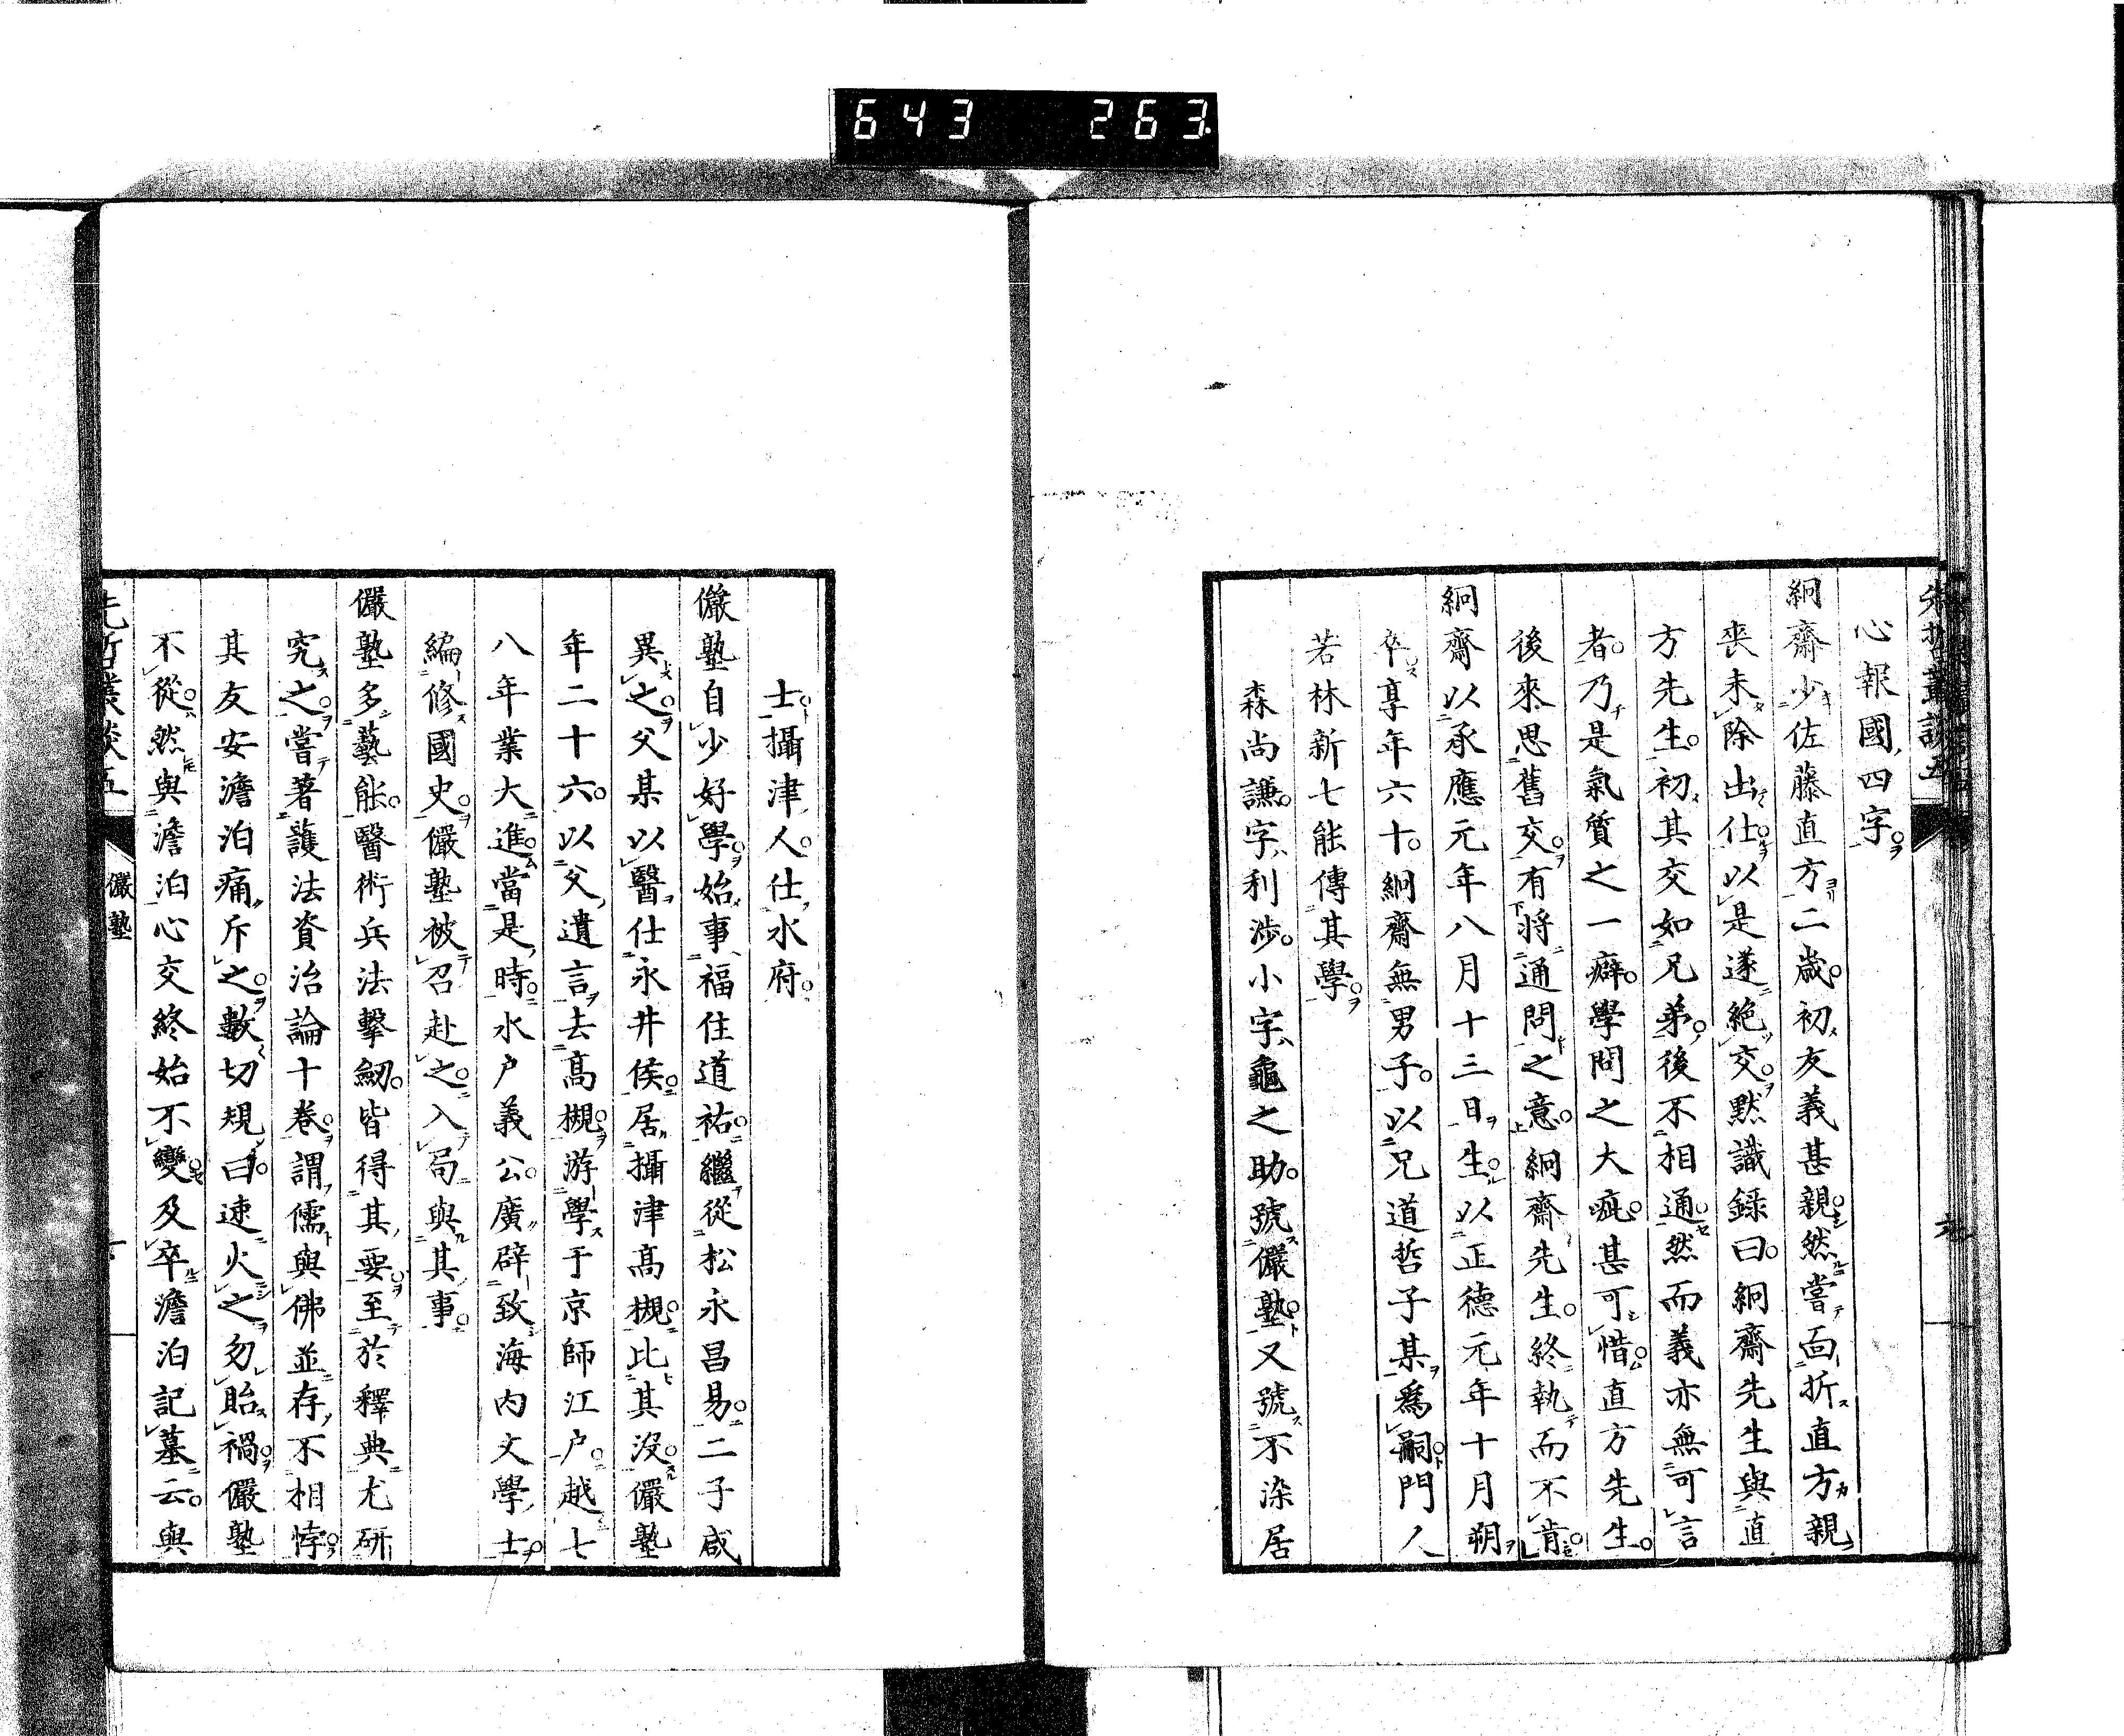 643 263
先哲叢談五
心報國四字。
絅齋少佐藤直方二歲。初友義甚親。然嘗面折直方親
喪未除出仕。以是遂絕交。默識錄曰。絅齋先生與直
方先生。初其交如兄弟。後不相通。然而義亦無可言
者。乃是氣質之一癖。學問之大疵。甚可惜。直方先生。
後來思舊交。有將通問之意。絅齋先生。終執而不肯。
絅齋以承應元年八月十三日生。以正德元年十月朔
卒。享年六十。絅齋無男子。以兄道哲子某爲嗣。門人
若林新七能傳其學。
森尚謙。字利涉。小字龜之助。號儼塾。又號不染居
士。攝津人。仕水府。
儼塾自少好學。始事福住道祐。繼從松永昌易。二子咸
異之。父某以醫仕永井侯。居攝津高槻。比其沒。儼塾
年二十六。以父遺言去高槻。游學于京師江戶。越七
八年業大進。當是時。水戶義公。廣辟致海內文學士。
編修國史。儼塾被召赴之。入局與其事。
儼塾多藝能。醫術兵法擊劒。皆得其要。至於釋典尤研
究之。嘗著護法資治論十卷。謂儒與佛並存不相悖。
其友安澹泊痛斥之。數切規曰。速火之勿貽禍。儼塾
不從。然與澹泊心交終始不變。及卒澹泊記墓云。與
先哲叢談五
儼塾